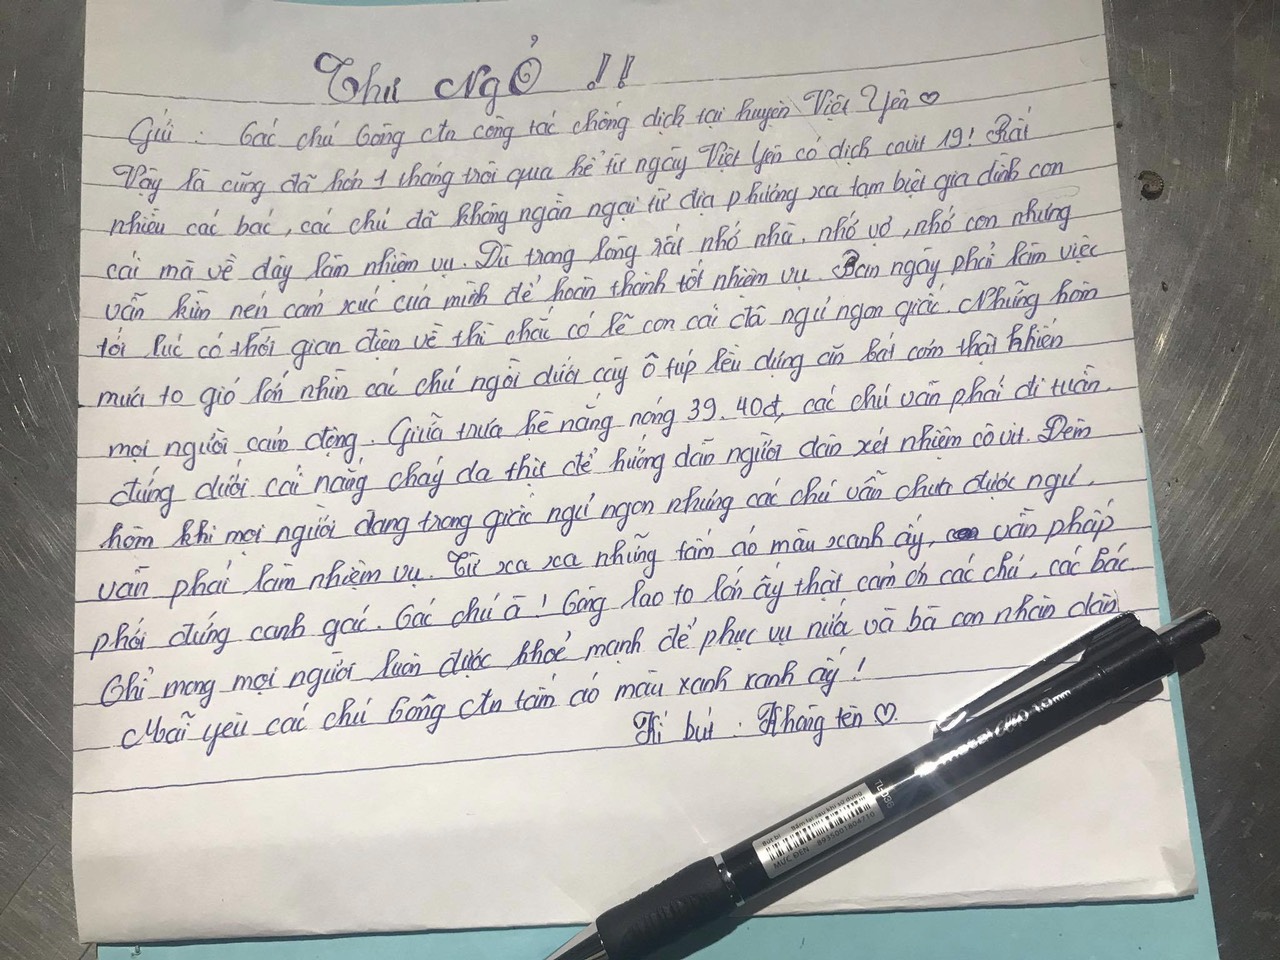 Thư Ngỏ !!
Gửi : Các chú Công an công tác chống dịch tại huyện Việt Yên ♡
Vậy là cũng đã hơn 1 tháng trôi qua kể từ ngày Việt Yên có dịch covit 19! Rất
nhiều các bác, các chú đã không ngần ngại từ địa phương xa tạm biệt gia đình con
cái mà về đây làm nhiệm vụ. Dù trong lòng rất nhớ nhà, nhớ vợ, nhớ con nhưng
vẫn kìm nén cảm xúc của mình để hoàn thành tốt nhiệm vụ. Ban ngày phải làm việc
tối lúc có thời gian điện về thì chắc có lẽ con cái đã ngủ ngon giấc. Những hôm
mưa to gió lớn nhìn các chú ngồi dưới cây ô túp lều dựng ăn bát cơm thật khiến
mọi người cảm động. Giữa trưa hè nắng nóng 39. 40đ, các chú vẫn phải đi tuần.
đứng dưới cái nắng cháy da thịt để hướng dẫn người dân xét nhiệm côvit. Đêm
hôm khi mọi người đang trong giấc ngủ ngon nhưng các chú vẫn chưa được ngủ.
vẫn phải làm nhiệm vụ. Từ xa xa những tấm áo màu xanh ấy, vẫn phấp
phới đứng canh gác. Các chú à! Công lao to lớn ấy thật cảm ơn các chú, các bác
Chỉ mong mọi người luôn được khoẻ mạnh để phục vụ nứa và bà con nhân dân
Mãi yêu các chú Công an tấm áo màu xanh xanh ấy!
Kí bút : Không tên ♡.
1.0mm
TL-036
Bút bi Bấm lại sau khi sử dụng
MỰC ĐEN 8935001804710